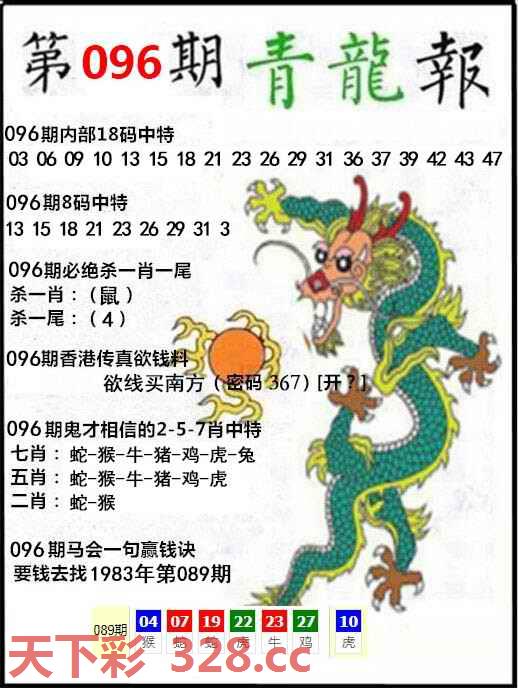 第096期青龍報
096期内部18码中特
03 06 09 10 13 15 18 21 23 26 29 31 36 37 39 42 43 47
096期8码中特
13 15 18 21 23 26 29 31 3
096期必绝杀一肖一尾
杀一肖：（鼠）
杀一尾：（4）
096期香港传真欲钱料
欲线买南方（密码 367）[开？]
096期鬼才相信的2-5-7肖中特
七肖：蛇-猴-牛-猪-鸡-虎-兔
五肖：蛇-猴-牛-猪-鸡-虎
二肖：蛇-猴
096期马会一句赢钱诀
要钱去找1983年第089期
089期 04 07 19 22 23 27 10
猴 蛇 蛇 虎 牛 鸡 虎
天下彩 328.cc